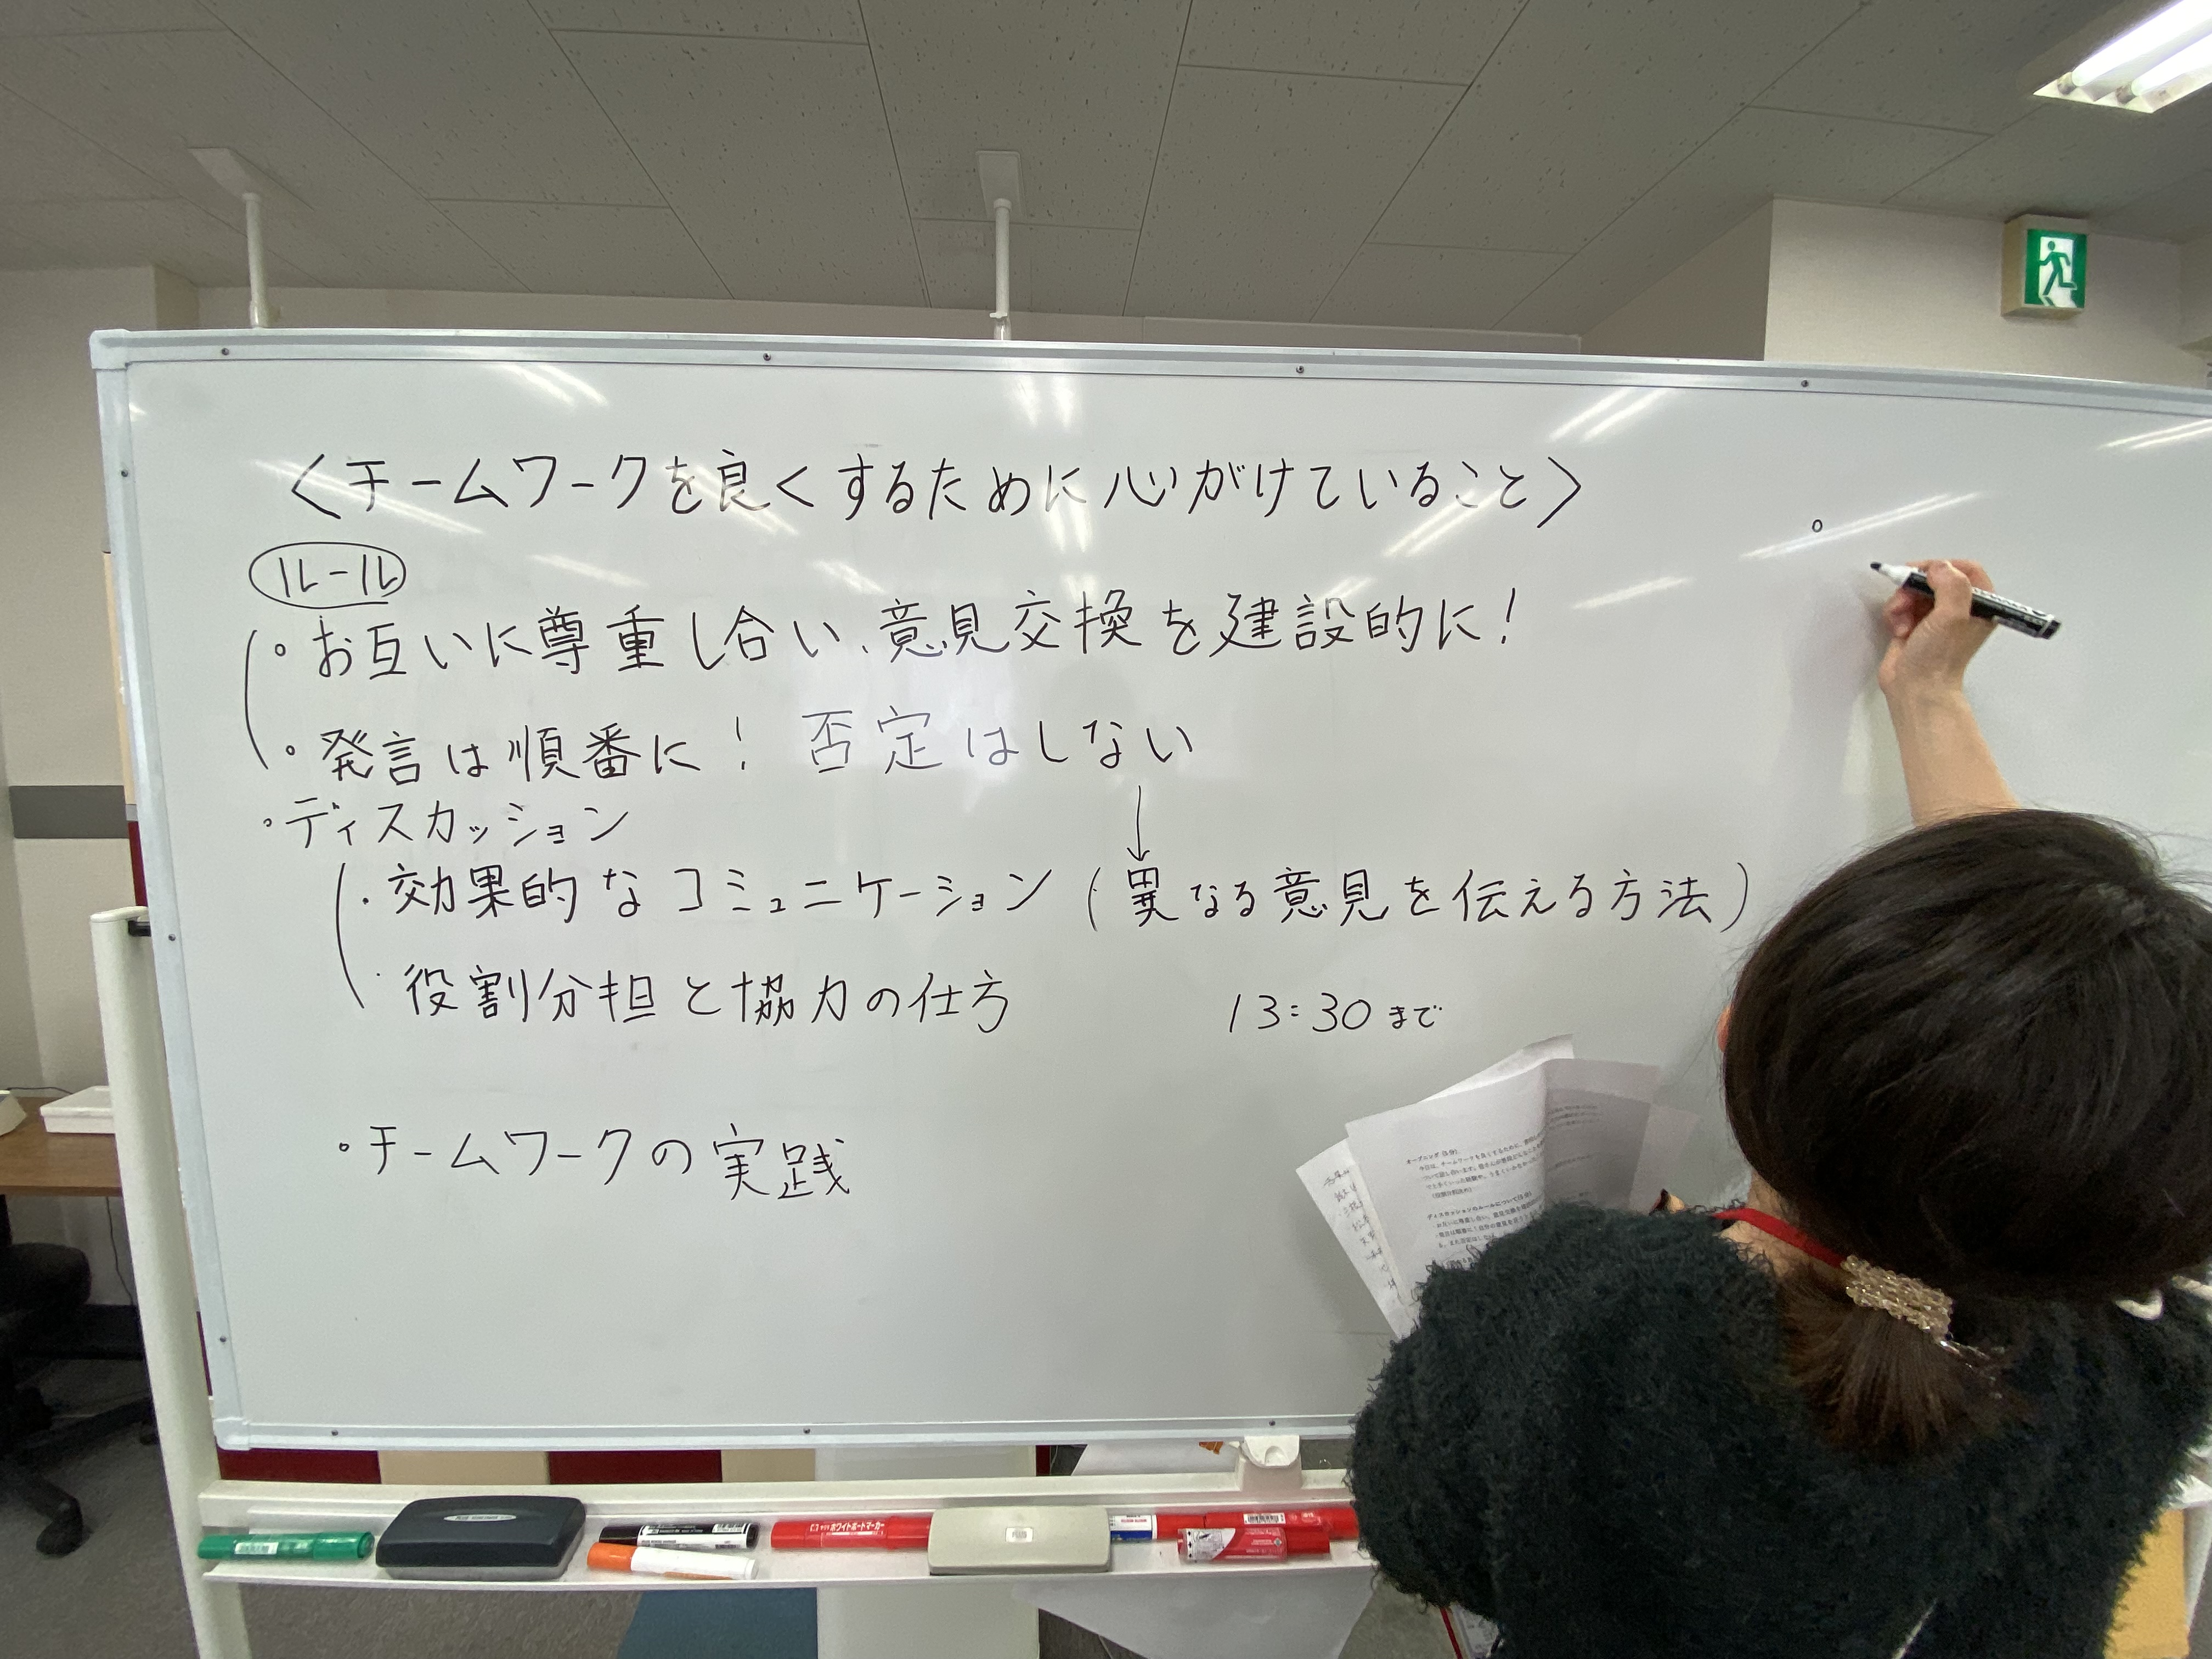 〈チームワークを良くするために心がけていること〉
ルール
。お互いに尊重し合い、意見交換を建設的に!
。発言は順番に! 否定はしない
↓
。ディスカッション
・効果的なコミュニケーション (異なる意見を伝える方法)
・役割分担と協力の仕方
13:30 まで
。チームワークの実践
オープニング (5分)
ディスカッションのルールについて(5分)
ホワイトボードマーカー